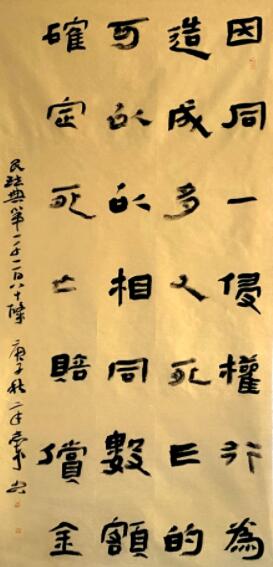 因同一侵權行為
造成多人死亡的
可以以相同數額
確定死亡賠償金
民法典第一千一百八十條 庚子秋